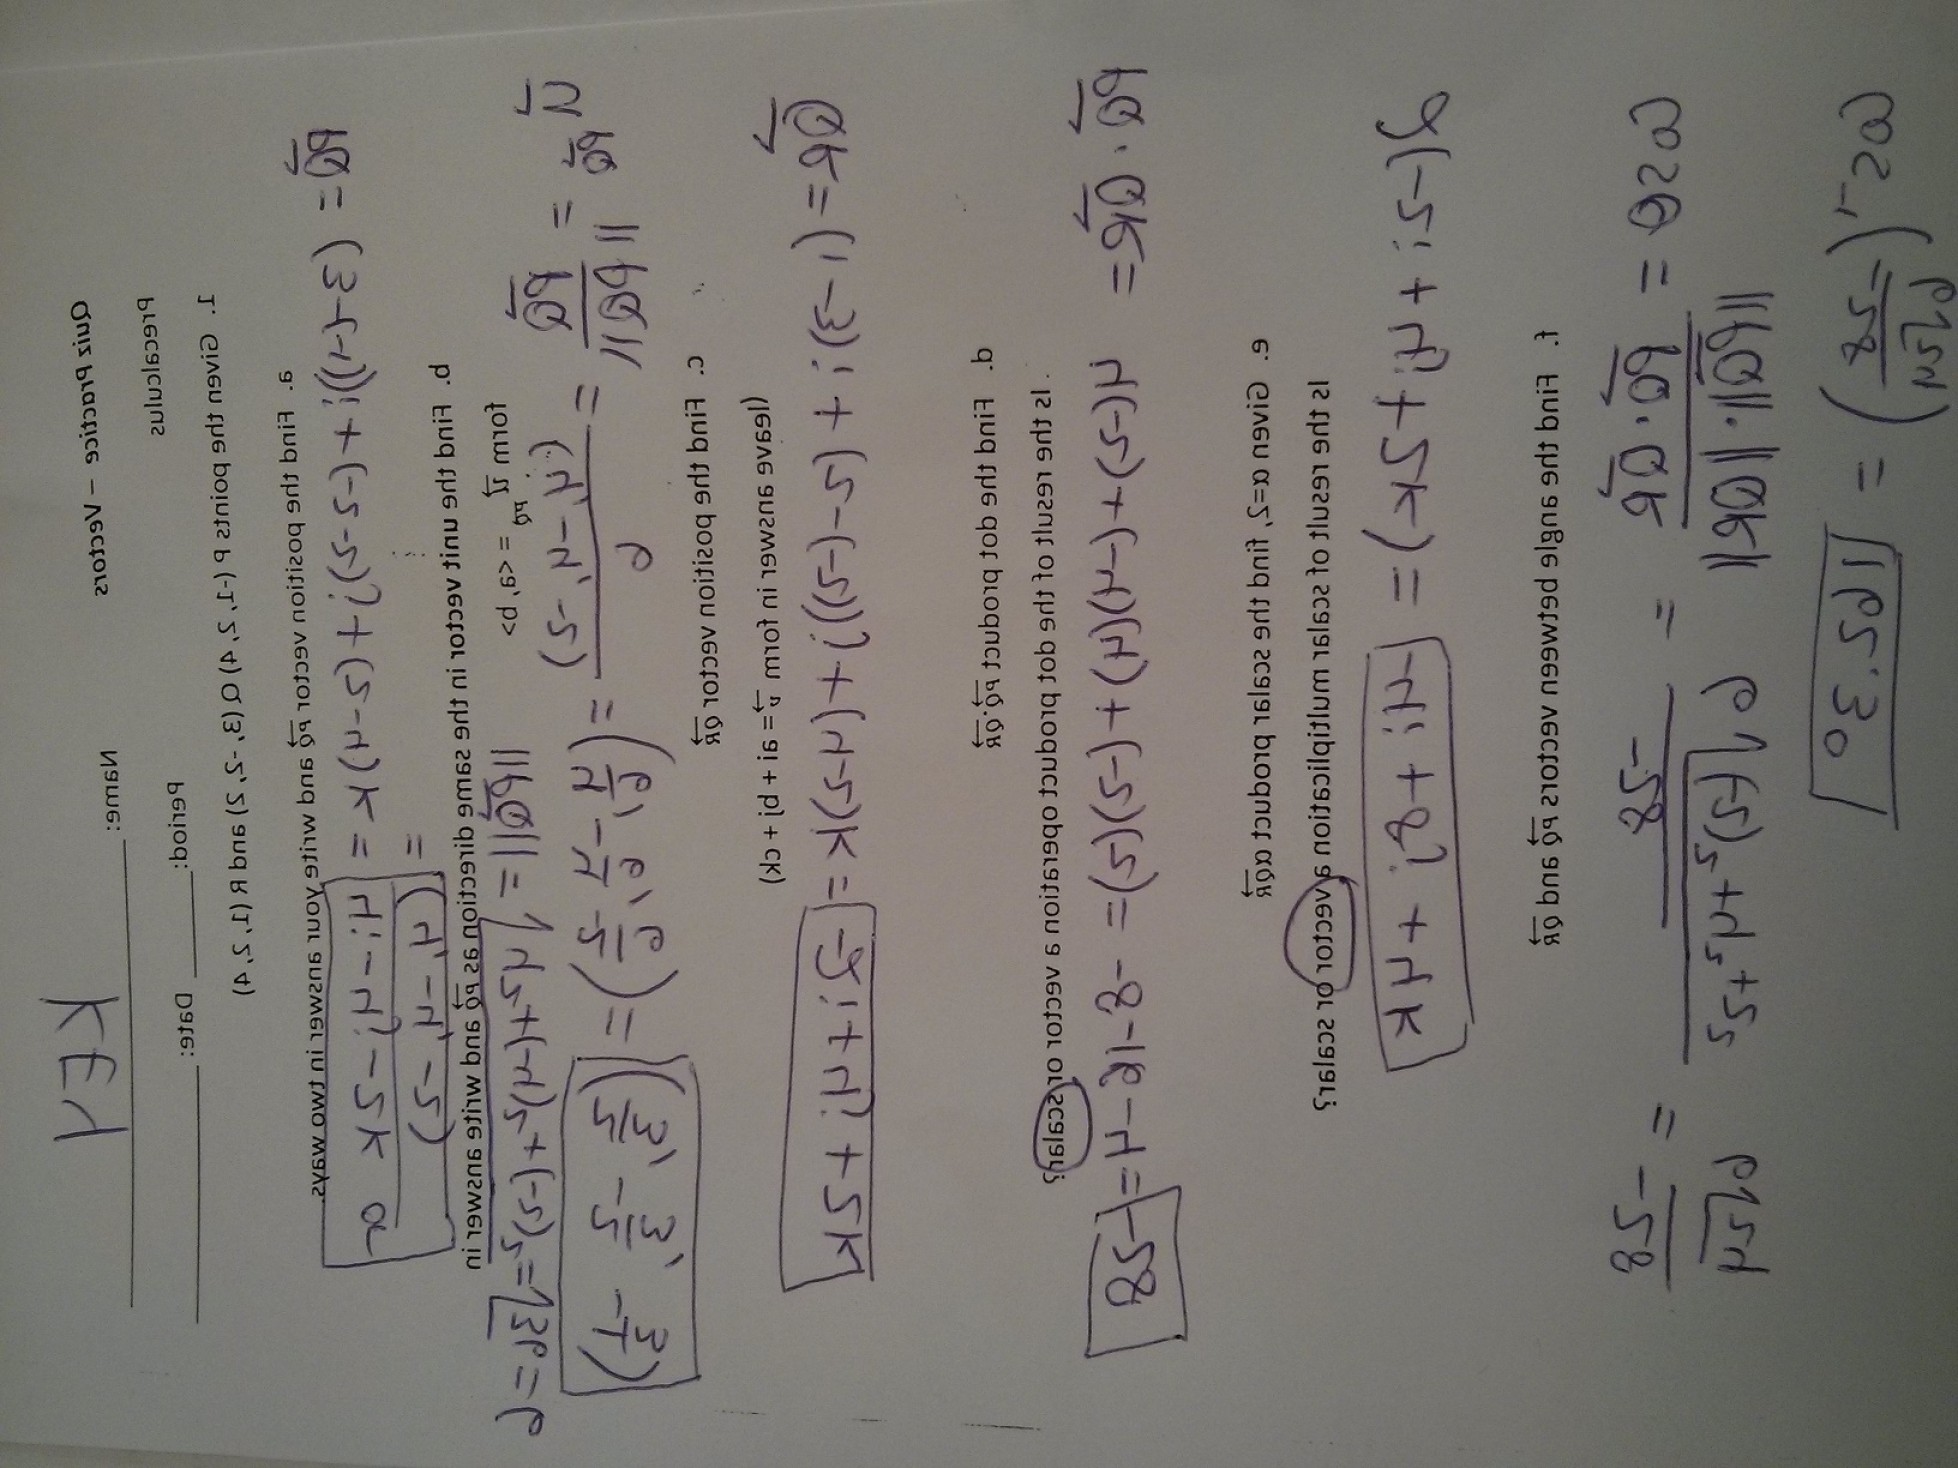 Quiz Practice – Vectors Name: KEY
Precalculus Period: Date:
1. Given the points P (-1, 2, 4) Q (3, -2, 2) and R (1, 2, 4)
a. Find the position vector PQ⃗ and write your answer in two ways.
PQ⃗ = (3-(-1))i + (-2-2)j + (2-4)k = 4i - 4j - 2k or
= (4, -4, -2)
b. Find the unit vector in the same direction as PQ⃗ and write answer in
form u⃗ PQ = <a, b> ||PQ⃗|| = √4²+(-4)²+(-2)² = √36 = 6
u⃗ PQ = PQ⃗/||PQ⃗|| = (4, -4, -2)/6 = (4/6, -4/6, -2/6) = (2/3, -2/3, -1/3)
c. Find the position vector QR⃗
(leave answer in form v⃗ = ai + bj + ck)
QR⃗ = (1-3)i + (2-(-2))j + (4-2)k = -2i + 4j + 2k
d. Find the dot product PQ⃗·QR⃗
Is the result of the dot product operation a vector or scalar?
PQ⃗·QR⃗ = 4(-2)+(-4)(4)+(-2)(2) = -8-16-4 = -28
e. Given α=2, find the scalar product αQR⃗
Is the result of scalar multiplication a vector or scalar?
2(-2i + 4j + 2k) = -4i + 8j + 4k
f. Find the angle between vectors PQ⃗ and QR⃗
cosθ = PQ⃗·QR⃗/||QR⃗||·||PQ⃗|| = -28/6√(-2)²+4²+2² = -28/6√24
cos⁻¹(-28/6√24) = 162.3°